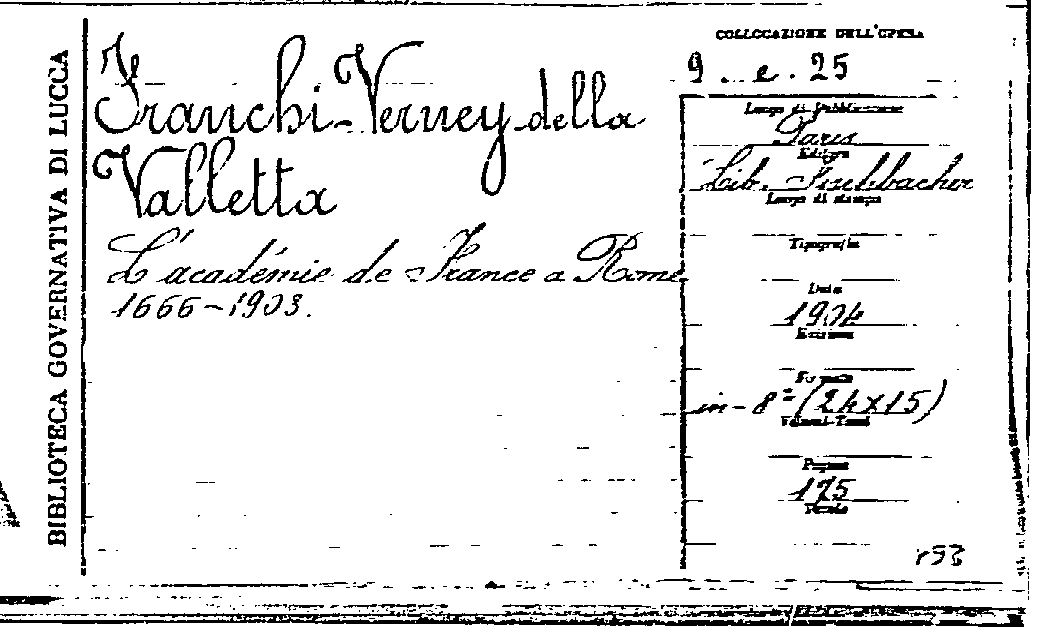 BIBLIOTECA GOVERNATIVA DI LUCCA
Franchi-Verney della
Valletta
L'académie de France a Rome
1666-1903.
COLLOCAZIONE DELL'OPERA
9. e. 25
Luogo di Pubblicazione
Paris
Editore
Lib. Fischbacher
Luogo di stampa
Tipografia
Data
1904
Edizione
Formato
in-8º (24x15)
Volumi-Tomi
Pagine
175
Tavole